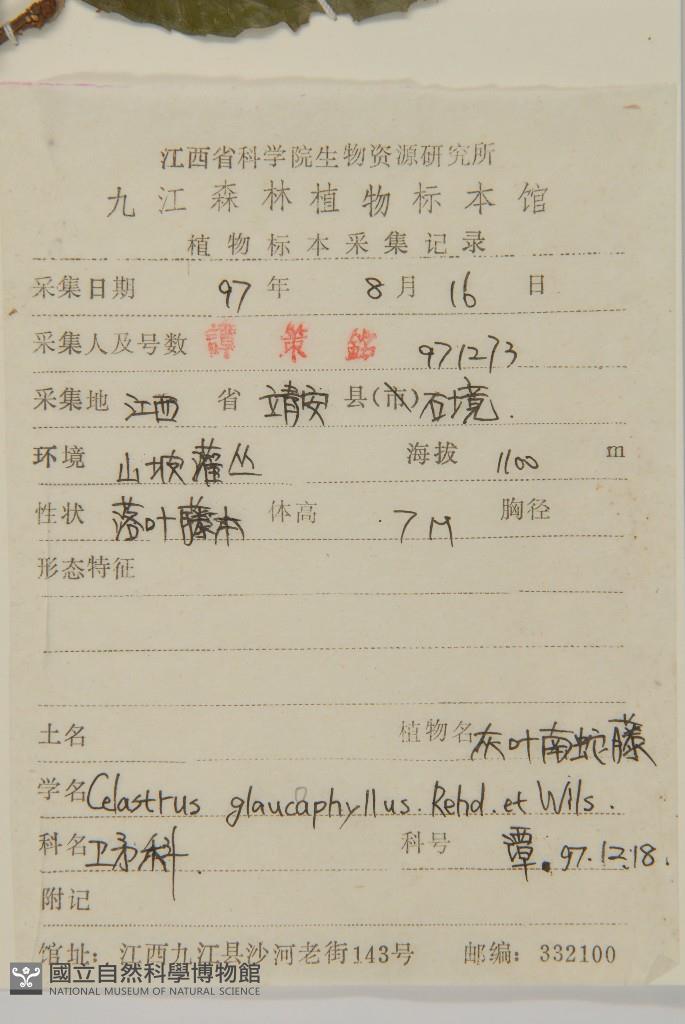 江西省科学院生物资源研究所
九江森林植物标本馆
植物标本采集记录
采集日期 97 年 8 月 16 日
采集人及号数 譚策銘 971273
采集地 江西 省 靖安 县(市) 石境.
环境 山坡灌丛 海拔 1100 m
性状 落叶藤本 体高 7M 胸径
形态特征
土名 植物名 灰叶南蛇藤
学名 Celastrus glaucaphyllus. Rehd. et Wils.
科名 卫矛科. 科号 潭. 97.12.18.
附记
馆址: 江西九江县沙河老街143号 邮编: 332100
國立自然科學博物館
NATIONAL MUSEUM OF NATURAL SCIENCE